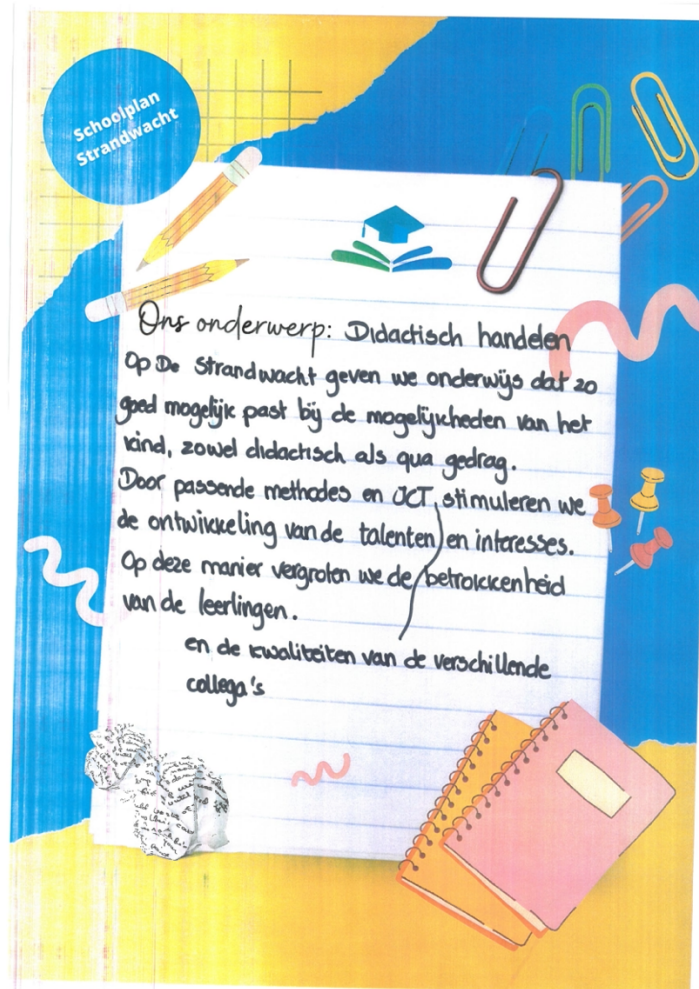 Schoolplan
Strandwacht
Ons onderwerp: Didactisch handelen
Op De Strandwacht geven we onderwijs dat zo
goed mogelijk past bij de mogelijkheden van het
kind, zowel didactisch als qua gedrag.
Door passende methodes en ICT, stimuleren we
de ontwikkeling van de talenten en interesses.
Op deze manier vergroten we de betrokkenheid
van de leerlingen.
en de kwaliteiten van de verschillende
collega's